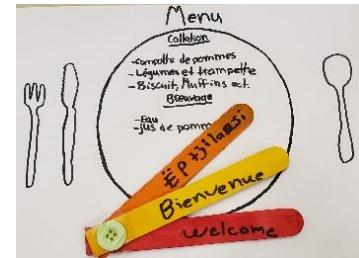 Menu
Collation
-compotte de pommes
-Légumes et trampette
-Biscuit, Muffins ect.
Breuvage
-Eau
-jus de pomm
Bienvenue
Welcome